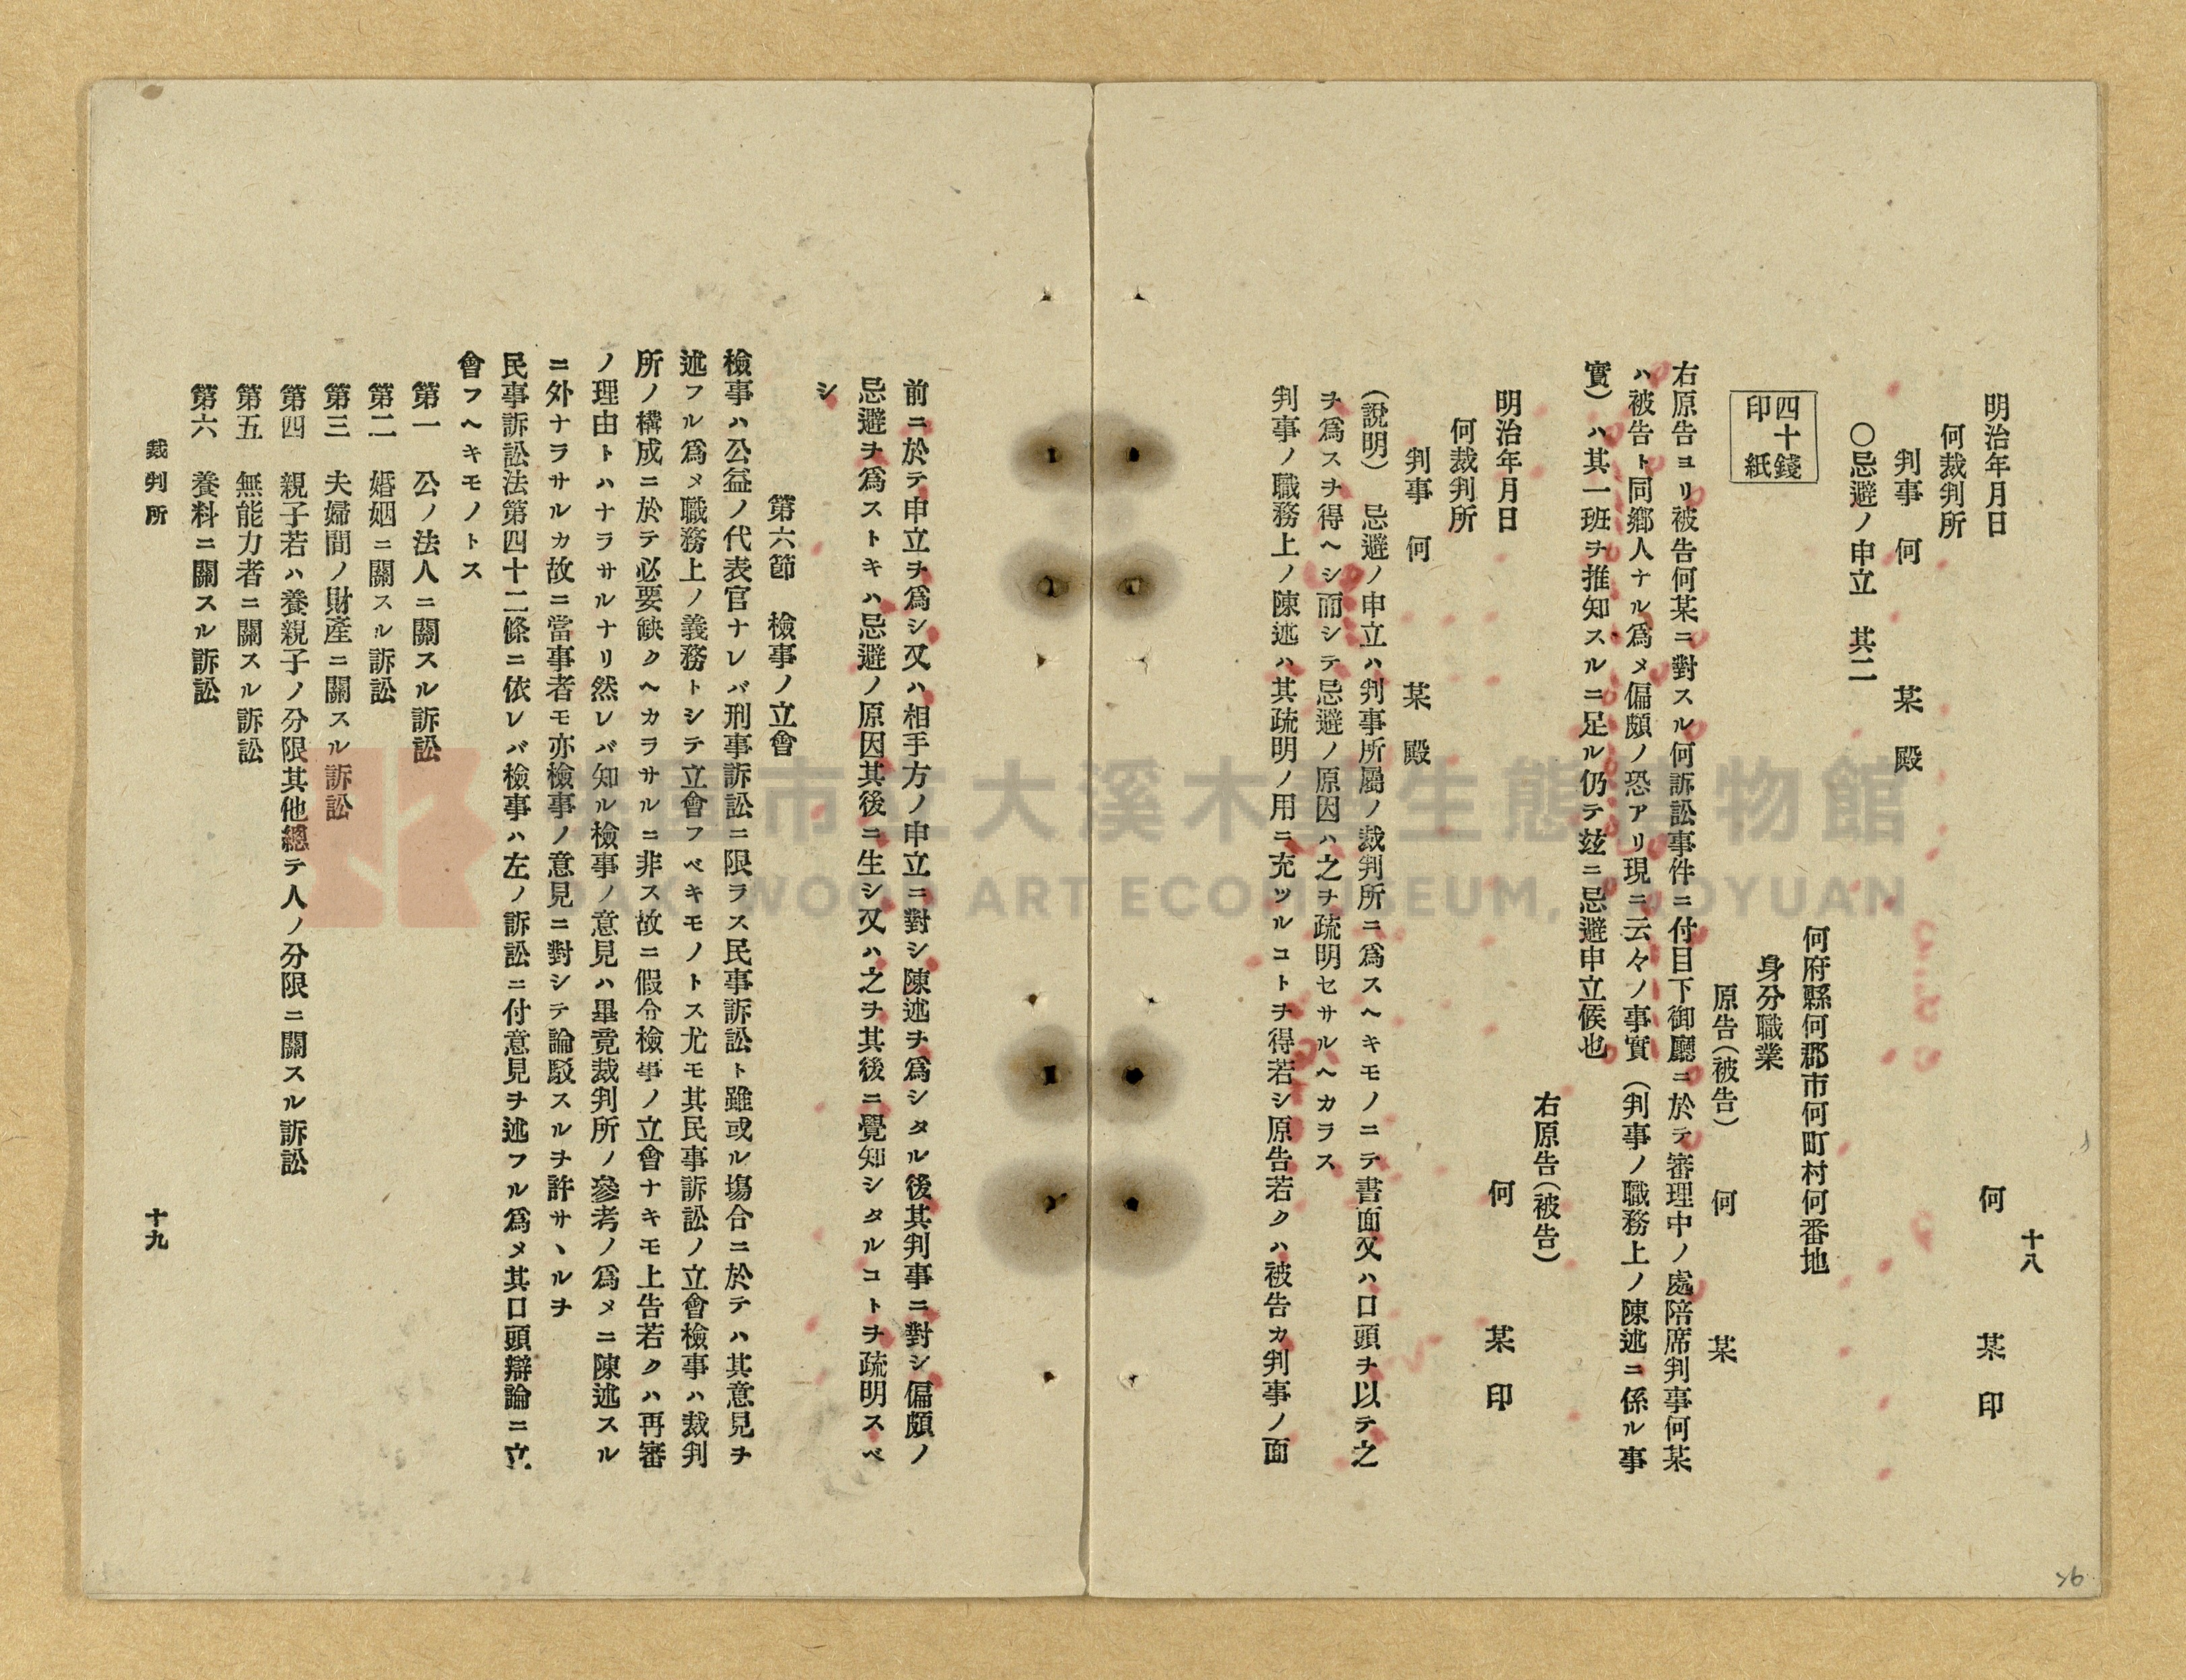 十八
何　某　印
明治年月日
何裁判所
判事　何　某　殿
〇忌避ノ申立　其二
何府縣何郡市何町村何番地
四十錢
印紙
身分職業
原告(被告)　何　某
右原告ヨリ被告何某ニ對スル何訴訟事件ニ付目下御廳ニ於テ審理中ノ處陪席判事何某
ハ被告ト同鄕人ナル爲メ偏頗ノ恐アリ現ニ云々ノ事實(判事ノ職務上ノ陳述ニ係ル事
實)ハ其一班ヲ推知スルニ足ル仍テ玆ニ忌避申立候也
右原告(被告)
明治年月日　何　某　印
何裁判所
判事　何　某　殿
(說明)　忌避ノ申立ハ判事所屬ノ裁判所ニ爲スヘキモノニテ書面又ハ口頭ヲ以テ之
ヲ爲スヲ得ヘシ而シテ忌避ノ原因ハ之ヲ疏明セサルヘカラス
判事ノ職務上ノ陳述ハ其疏明ノ用ニ充ツルコトヲ得若シ原告若クハ被告カ判事ノ面
前ニ於テ申立ヲ爲シ又ハ相手方ノ申立ニ對シ陳述ヲ爲シタル後其判事ニ對シ偏頗ノ
忌避ヲ爲ストキハ忌避ノ原因其後ニ生シ又ハ之ヲ其後ニ覺知シタルコトヲ疏明スベ
シ
第六節　檢事ノ立會
檢事ハ公益ノ代表官ナレバ刑事訴訟ニ限ラス民事訴訟ト雖或ル塲合ニ於テハ其意見ヲ
述フル爲メ職務上ノ義務トシテ立會フベキモノトス尤モ其民事訴訟ノ立會檢事ハ裁判
所ノ構成ニ於テ必要缺クヘカラサルニ非ス故ニ假令檢事ノ立會ナキモ上告若クハ再審
ノ理由トハナラサルナリ然レバ知ル檢事ノ意見ハ畢竟裁判所ノ參考ノ爲メニ陳述スル
ニ外ナラサルカ故ニ當事者モ亦檢事ノ意見ニ對シテ論駁スルヲ許サヽルヲ
民事訴訟法第四十二條ニ依レバ檢事ハ左ノ訴訟ニ付意見ヲ述フル爲メ其口頭辯論ニ立
會フヘキモノトス
第一　公ノ法人ニ關スル訴訟
第二　婚姻ニ關スル訴訟
第三　夫婦間ノ財產ニ關スル訴訟
第四　親子若ハ養親子ノ分限其他總テ人ノ分限ニ關スル訴訟
第五　無能力者ニ關スル訴訟
第六　養料ニ關スル訴訟
裁判所　十九
市立大溪木藝生態博物館
DAXI WOOD ART ECOMUSEUM, TAOYUAN